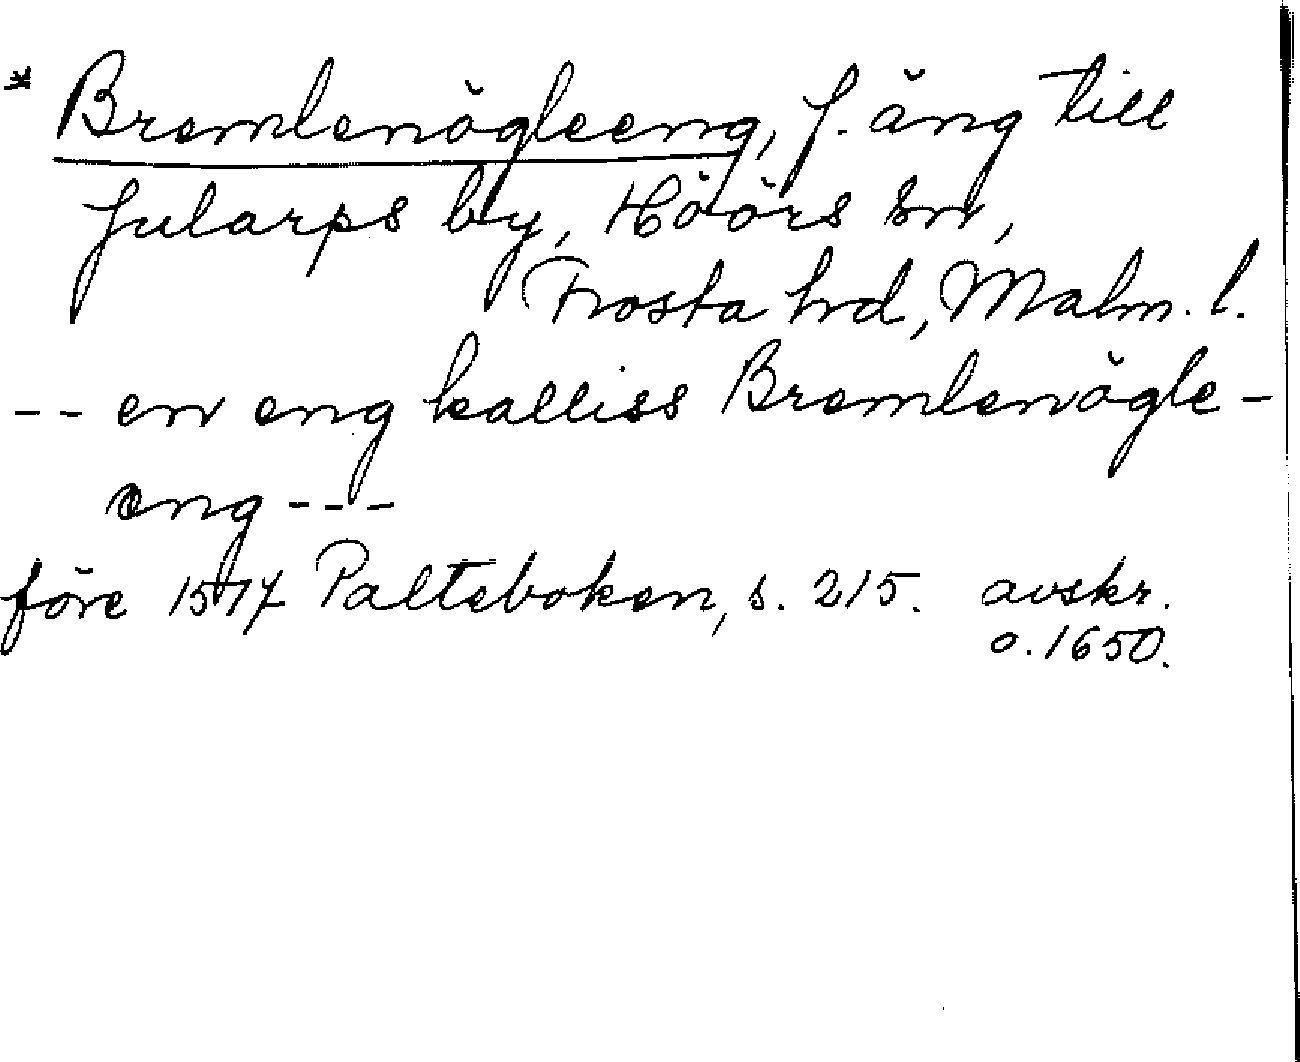 * Bremlenögleeng, f. äng till
Jularps by, Höörs sn,
Frosta hrd, Malm. l.
-- en eng kalliss Bremlenögle-
eng ---
före 1577 Palteboken, s. 215. avskr.
o. 1650.